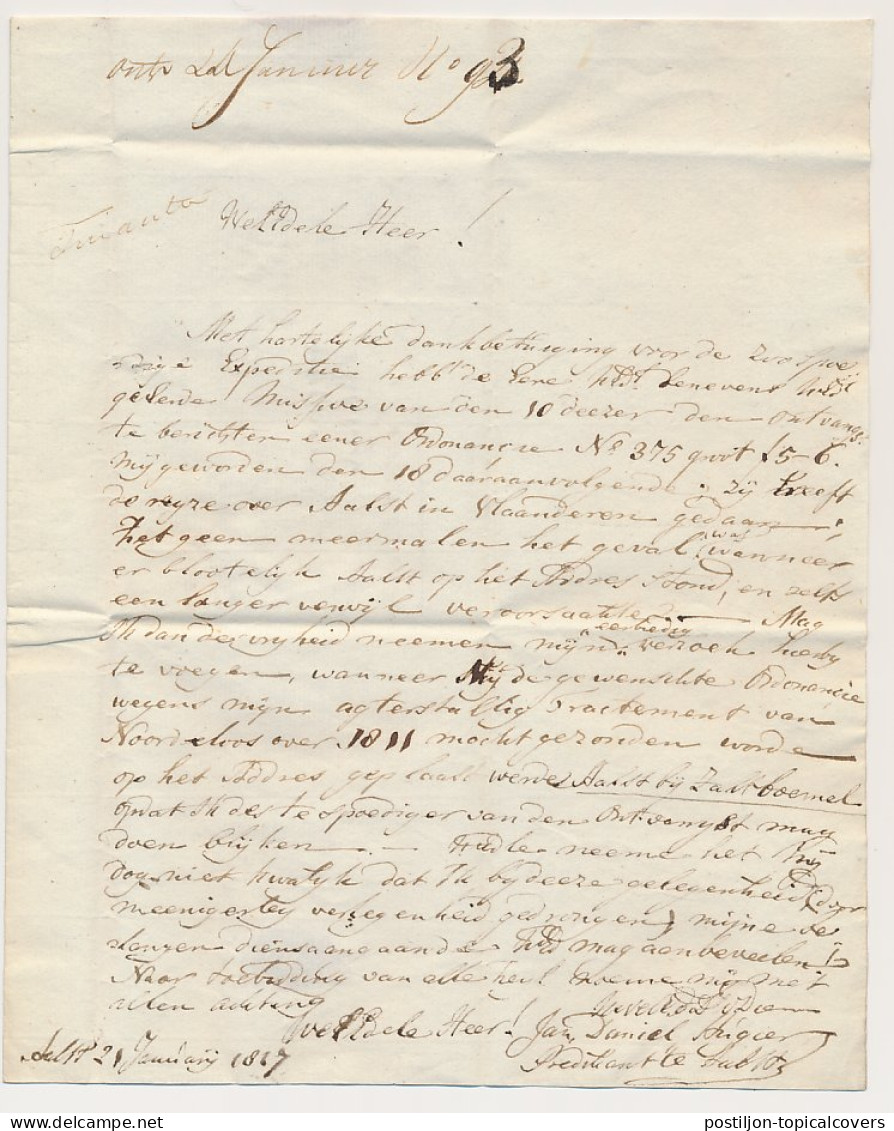 ontv 24 Januari No 93
WelEdele Heer!
Met hartelijke dankbetuiging voor de zoo spoe
dige Expeditie hebb' de Eere UwEd. benevens UwEd
geleerde Missive van den 10 deezer den ontvangst
te berichten eener Ordonancie No 375 groot f 5-6.
Mij geworden den 18 daaraanvolgende, zij heeft
de reyze over Aalst in Vlaanderen gedaan;
Het geen meermalen het geval was wanneer
er blootelijk Aalst op het Addres stond, en zelfs
een langer verwijl veroorsaakte. — Mag
Ik dan de vryheid neemen mijn eerbiedig verzoek hierby
te voegen, wanneer Mij de gewenschte Ordonancie
wegens mijn agterstallig Tractement van
Noordeloos over 1811 mocht gezonden worde
op het Addres geplaast werde Aalst bij Zaltboemel
opdat Ik des te spoediger van den Ontvangst mag
doen blyken. — UwEdle neeme het mij
dog niet kwalyk dat Ik by deeze gelegenheid door
meenigerley verlegenheid gedrongen, mijne be
langen diensaangaande UwEd mag aenbeveelen
Naar toebidding van alle heil noeme mij met
allen achting
WelEdele Heer! UwWelEd. D. W. Die
Jan Daniel Augier
Aalst 21 January 1817 Predikant te Aalst
postiljon-topicalcovers
postiljon-topicalcovers.com